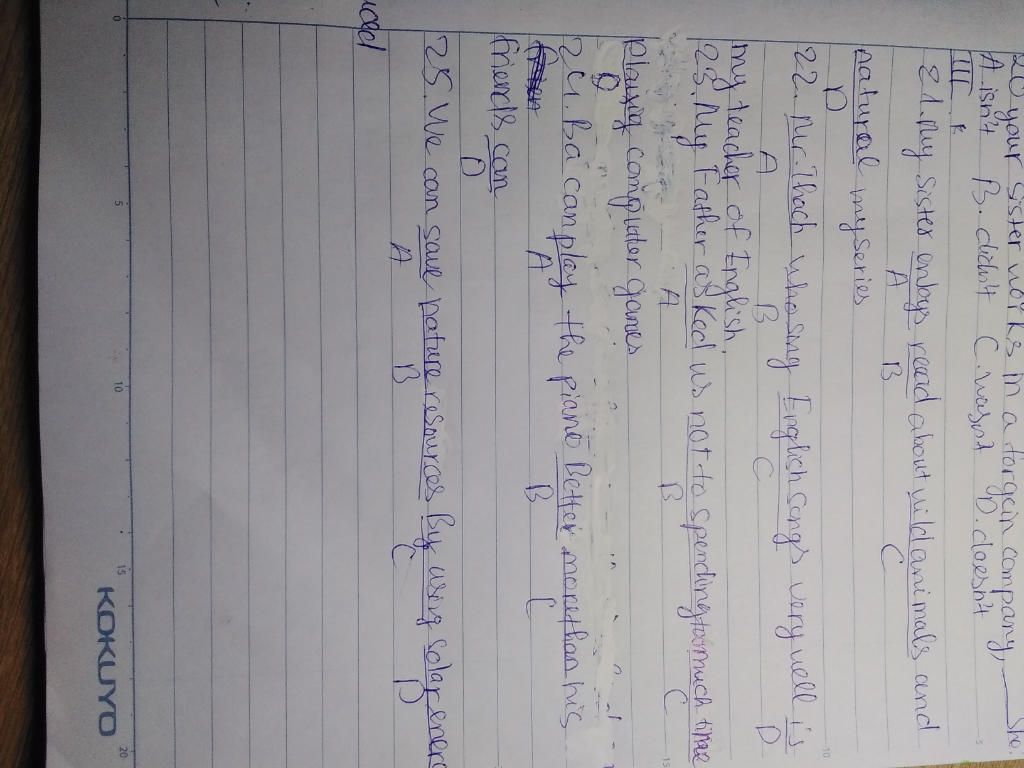 20 your sister works in a forgein company, ___ she.
A. isn't B. didn't C. wasn't D. doesn't
III.
21. My sister enloys read about wildanimals and
A B C
natureal myseries
D
22. Mr. Thach who sing English songs very well is
A B C D
my teacher of English,
23. My Father asked us not to spending tomuch time
A B C
playing computer games
D
24. Ba can play the piano Better morethan his
A B C
friends can
D
25. We can save nature resources By using solar energ
A B C D
KOKUYO
0
5
10
15
20
5
10
15